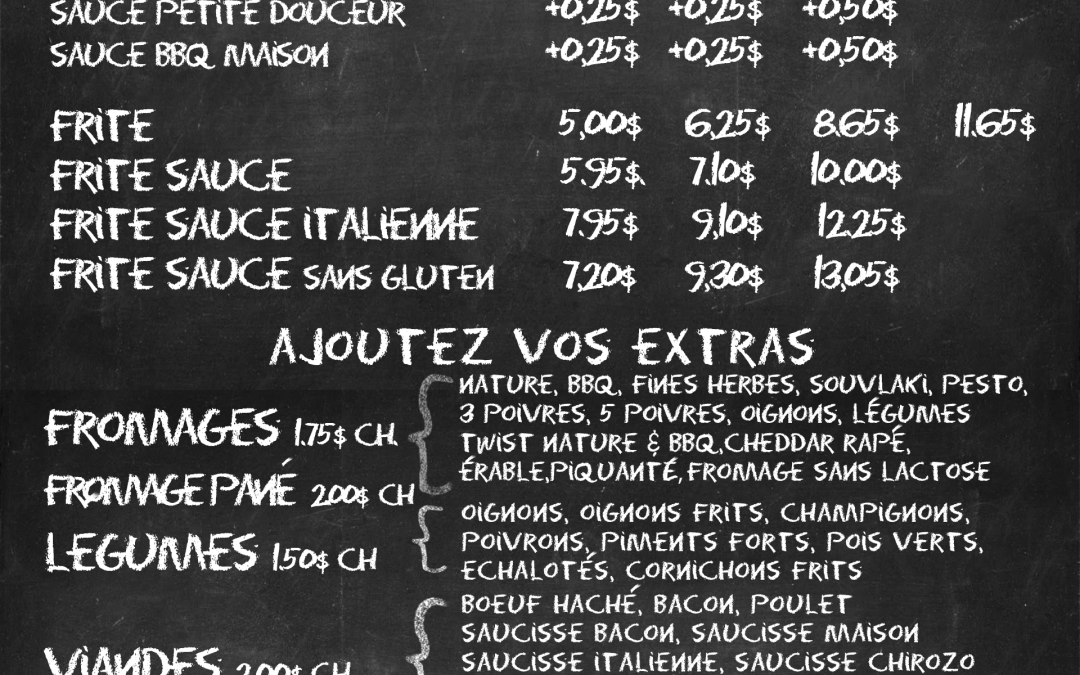 SAUCE PETITE DOUCEUR +0,25$ +0,25$ +0,50$
SAUCE BBQ MAISON +0,25$ +0,25$ +0,50$
FRITE 5,00$ 6,25$ 8.65$ 11.65$
FRITE SAUCE 5.95$ 7.10$ 10.00$
FRITE SAUCE ITALIENNE 7.95$ 9,10$ 12.25$
FRITE SAUCE SANS GLUTEN 7,20$ 9,30$ 13,05$
AJOUTEZ VOS EXTRAS
FROMAGES 1.75$ CH.
FROMAGE PANÉ 2.00$ CH
NATURE, BBQ, FINES HERBES, SOUVLAKI, PESTO,
3 POIVRES, 5 POIVRES, OIGNONS, LÉGUMES
TWIST NATURE & BBQ,CHEDDAR RAPÉ,
ÉRABLE,PIQUANTÉ,FROMAGE SANS LACTOSE
LEGUMES 1.50$ CH
OIGNONS, OIGNONS FRITS, CHAMPIGNONS,
POIVRONS, PIMENTS FORTS, POIS VERTS,
ECHALOTÉS, CORNICHONS FRITS
VIANDES 2.00$ CH
BOEUF HACHÉ, BACON, POULET
SAUCISSE BACON, SAUCISSE MAISON
SAUCISSE ITALIENNE, SAUCISSE CHIROZO